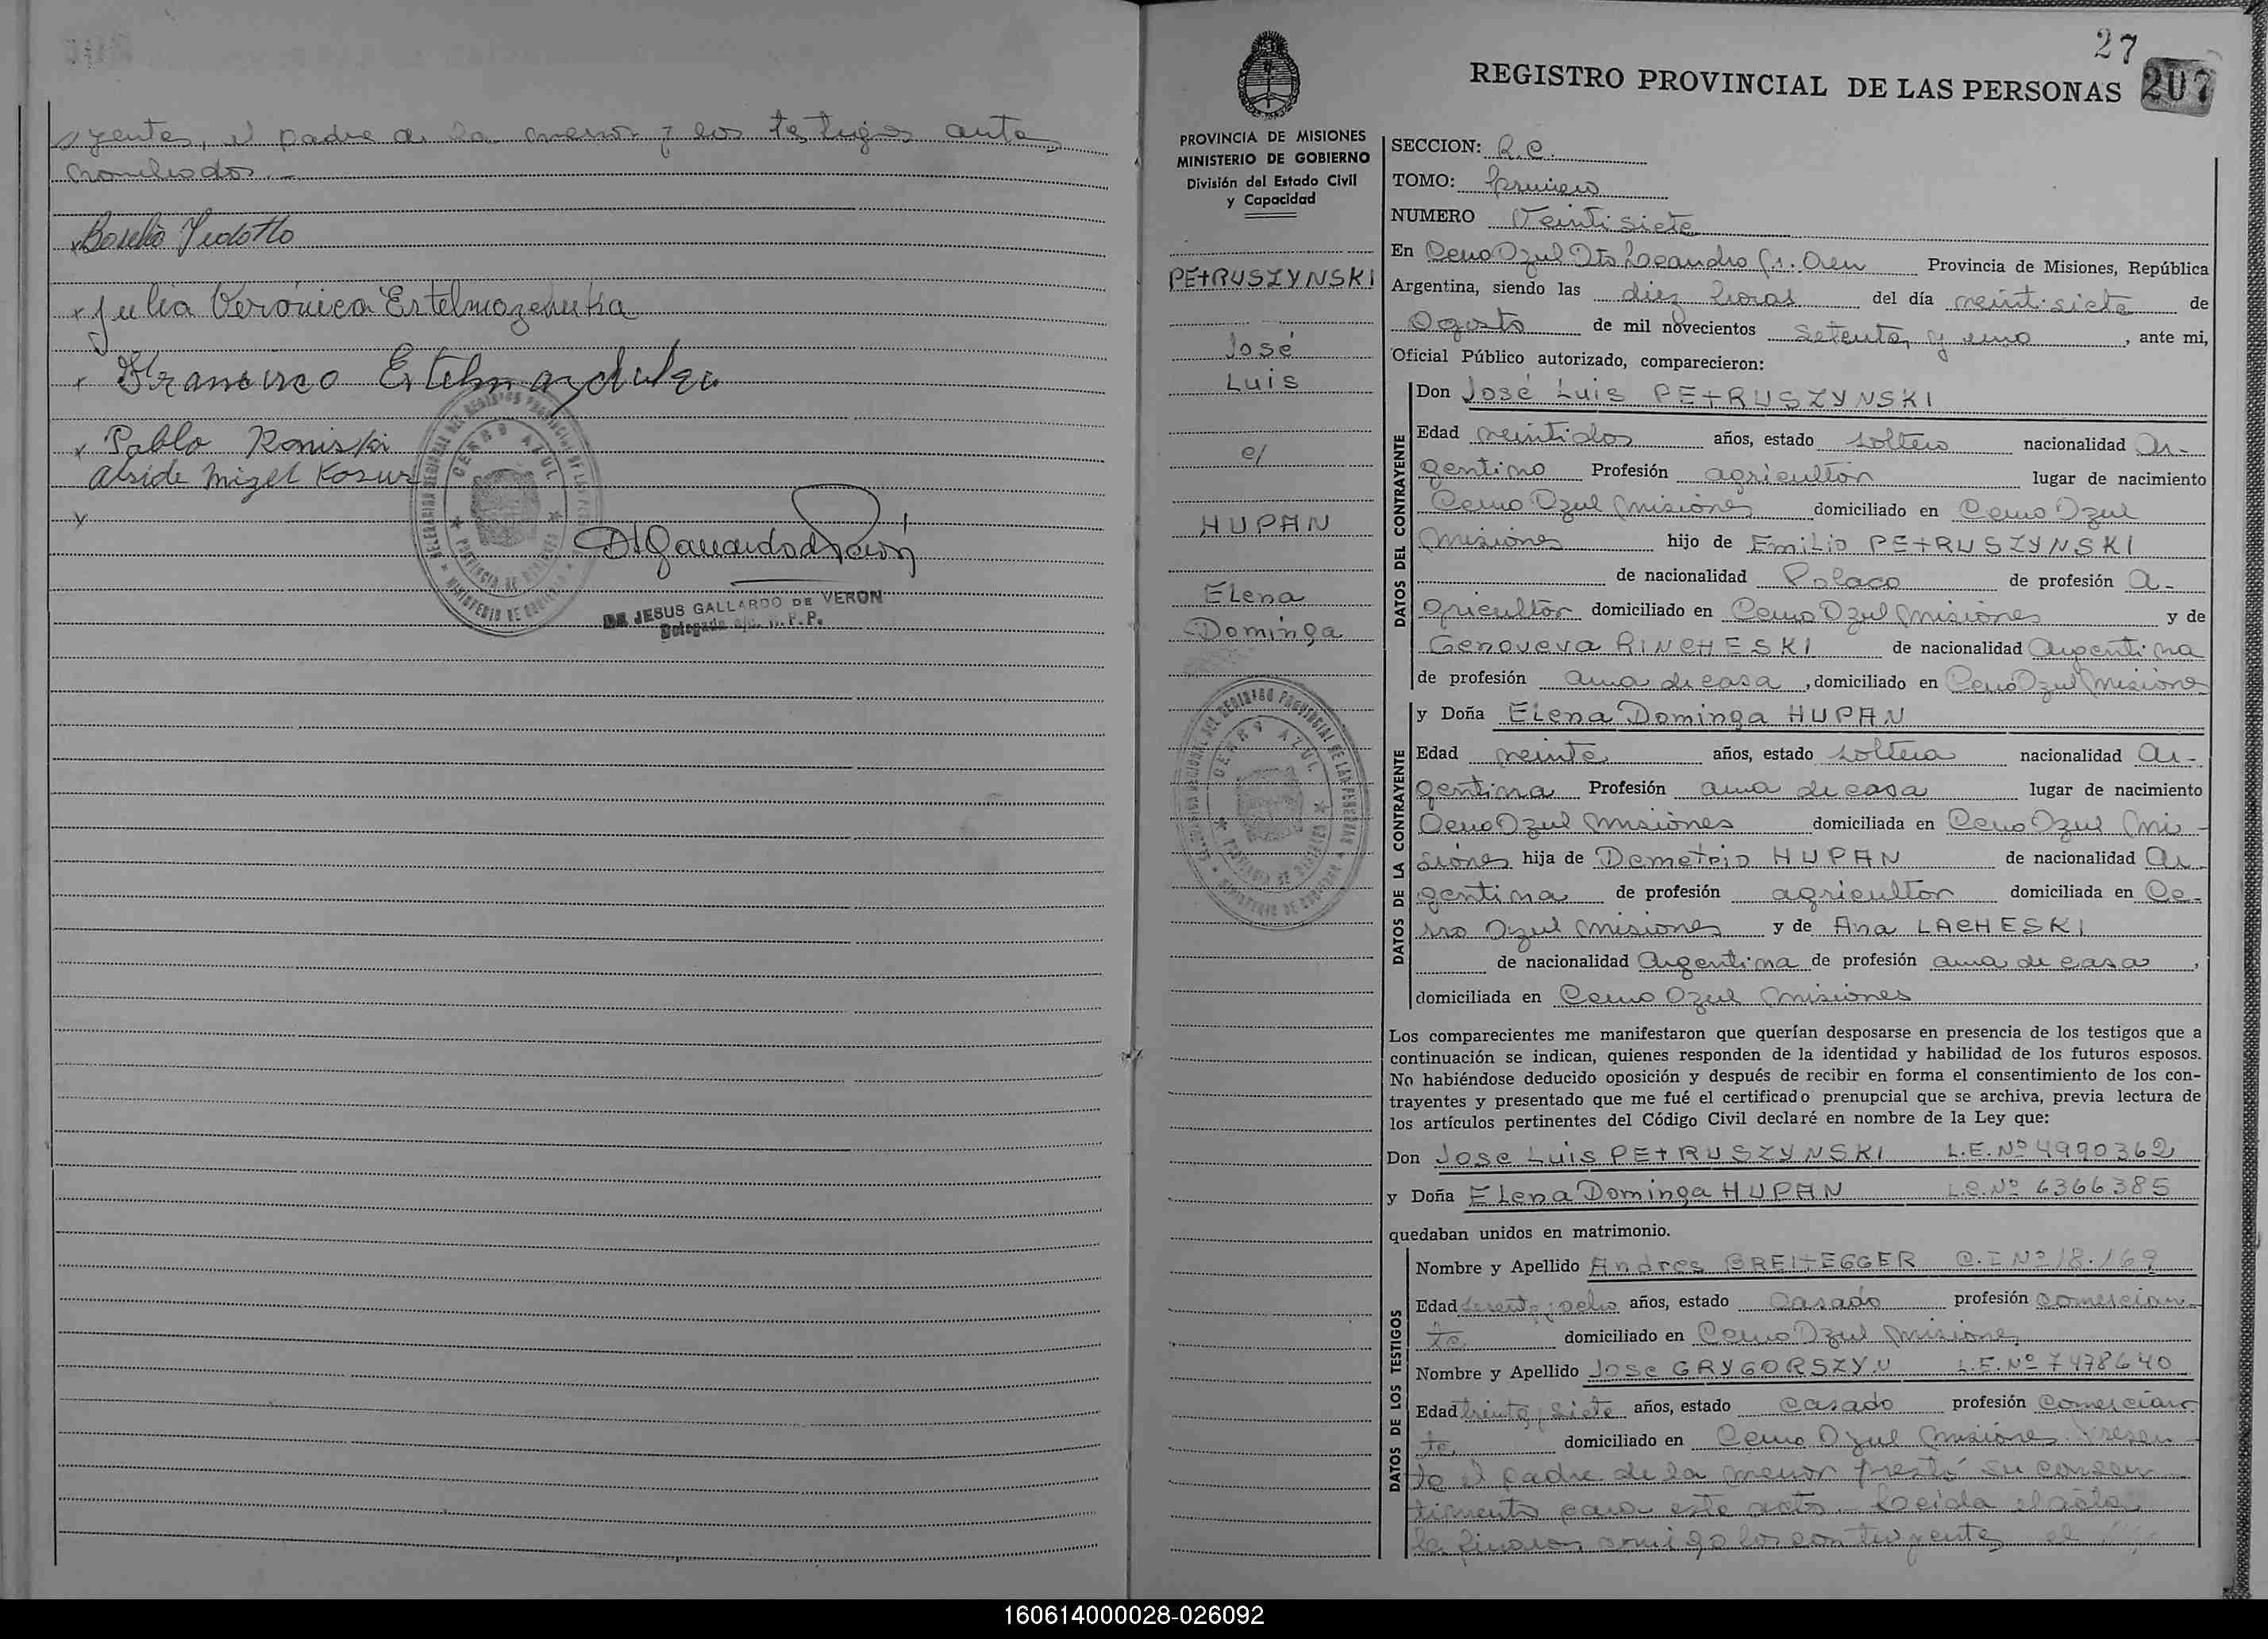 yentes, el padre de la menor y los testigos antes
nombrados.-
Julia Verónica Estelmazczuka
Francisco Estelmazchuka
Pablo Roniski
Alside Migel Kosur
DE JESUS GALLARDO DE VERON
Delegada
CERRO AZUL
27
207
REGISTRO PROVINCIAL DE LAS PERSONAS
PROVINCIA DE MISIONES
MINISTERIO DE GOBIERNO
División del Estado Civil
y Capacidad
PETRUSZYNSKI
José
Luis
c/
HUPAN
Elena
Dominga
CERRO AZUL
SECCION: R.C.
TOMO: Primero
NUMERO Veintisiete
En Cerro Azul Dto Leandro N. Alem Provincia de Misiones, República
Argentina, siendo las diez horas del día veintisiete de
Agosto de mil novecientos setenta y uno, ante mi,
Oficial Público autorizado, comparecieron:
DATOS DEL CONTRAYENTE
Don José Luis PETRUSZYNSKI
Edad veintidos años, estado soltero nacionalidad Ar-
gentino Profesión agricultor lugar de nacimiento
Cerro Azul Misiones domiciliado en Cerro Azul
Misiones hijo de Emilio PETRUSZYNSKI
de nacionalidad Polaco de profesión a-
gricultor domiciliado en Cerro Azul Misiones y de
Genoveva RINCHESKI de nacionalidad Argentina
de profesión ama de casa, domiciliado en Cerro Azul Misiones
DATOS DE LA CONTRAYENTE
y Doña Elena Dominga HUPAN
Edad veinte años, estado soltera nacionalidad Ar-
gentina Profesión ama de casa lugar de nacimiento
Cerro Azul Misiones domiciliada en Cerro Azul Mi-
siones hija de Demetrio HUPAN de nacionalidad Ar-
gentina de profesión agricultor domiciliada en Ce-
rro Azul Misiones y de Ana LACHESKI
de nacionalidad Argentina de profesión ama de casa,
domiciliada en Cerro Azul Misiones
Los comparecientes me manifestaron que querían desposarse en presencia de los testigos que a
continuación se indican, quienes responden de la identidad y habilidad de los futuros esposos.
No habiéndose deducido oposición y después de recibir en forma el consentimiento de los con-
trayentes y presentado que me fué el certificado prenupcial que se archiva, previa lectura de
los artículos pertinentes del Código Civil declaré en nombre de la Ley que:
Don Jose Luis PETRUSZYNSKI L.E. Nº 4990362
y Doña Elena Dominga HUPAN L.C. Nº 6366385
quedaban unidos en matrimonio.
DATOS DE LOS TESTIGOS
Nombre y Apellido Andres BREITEGGER C.I Nº 18.169
Edad sesenta y ocho años, estado casado profesión comercian-
te domiciliado en Cerro Azul Misiones
Nombre y Apellido Jose GRYGORSZYN L.E. Nº 7478640
Edad treinta y siete años, estado casado profesión comercian-
te, domiciliado en Cerro Azul Misiones. Presen-
te el padre de la menor prestó su consen-
timiento para este acto.- Leida el acta
la firman conmigo los contrayentes, el
160614000028-026092